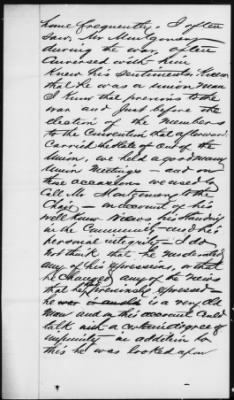 home frequently. I often
saw Mr Montgomery
during the war, often
conversed with him
knew his sentiments. Knew
that he was a union man
I know that previous to the
war and just before the
election of the member
to the Convention that afterward
Carried the State out of the
Union, we held a good many
Union Meetings — and on
those occasions we used to
Call Mr Montgomery to the
Chair — on account of his
well known views his standing
in the Community — and his
personal integrity — I do
not think that he moderated
any of his expressions, or that
he changed any of the views
that he previously expressed —
he was is a very old
man and on this account could
talk with a certain degree of
impunity in addition to
this he was looked upon